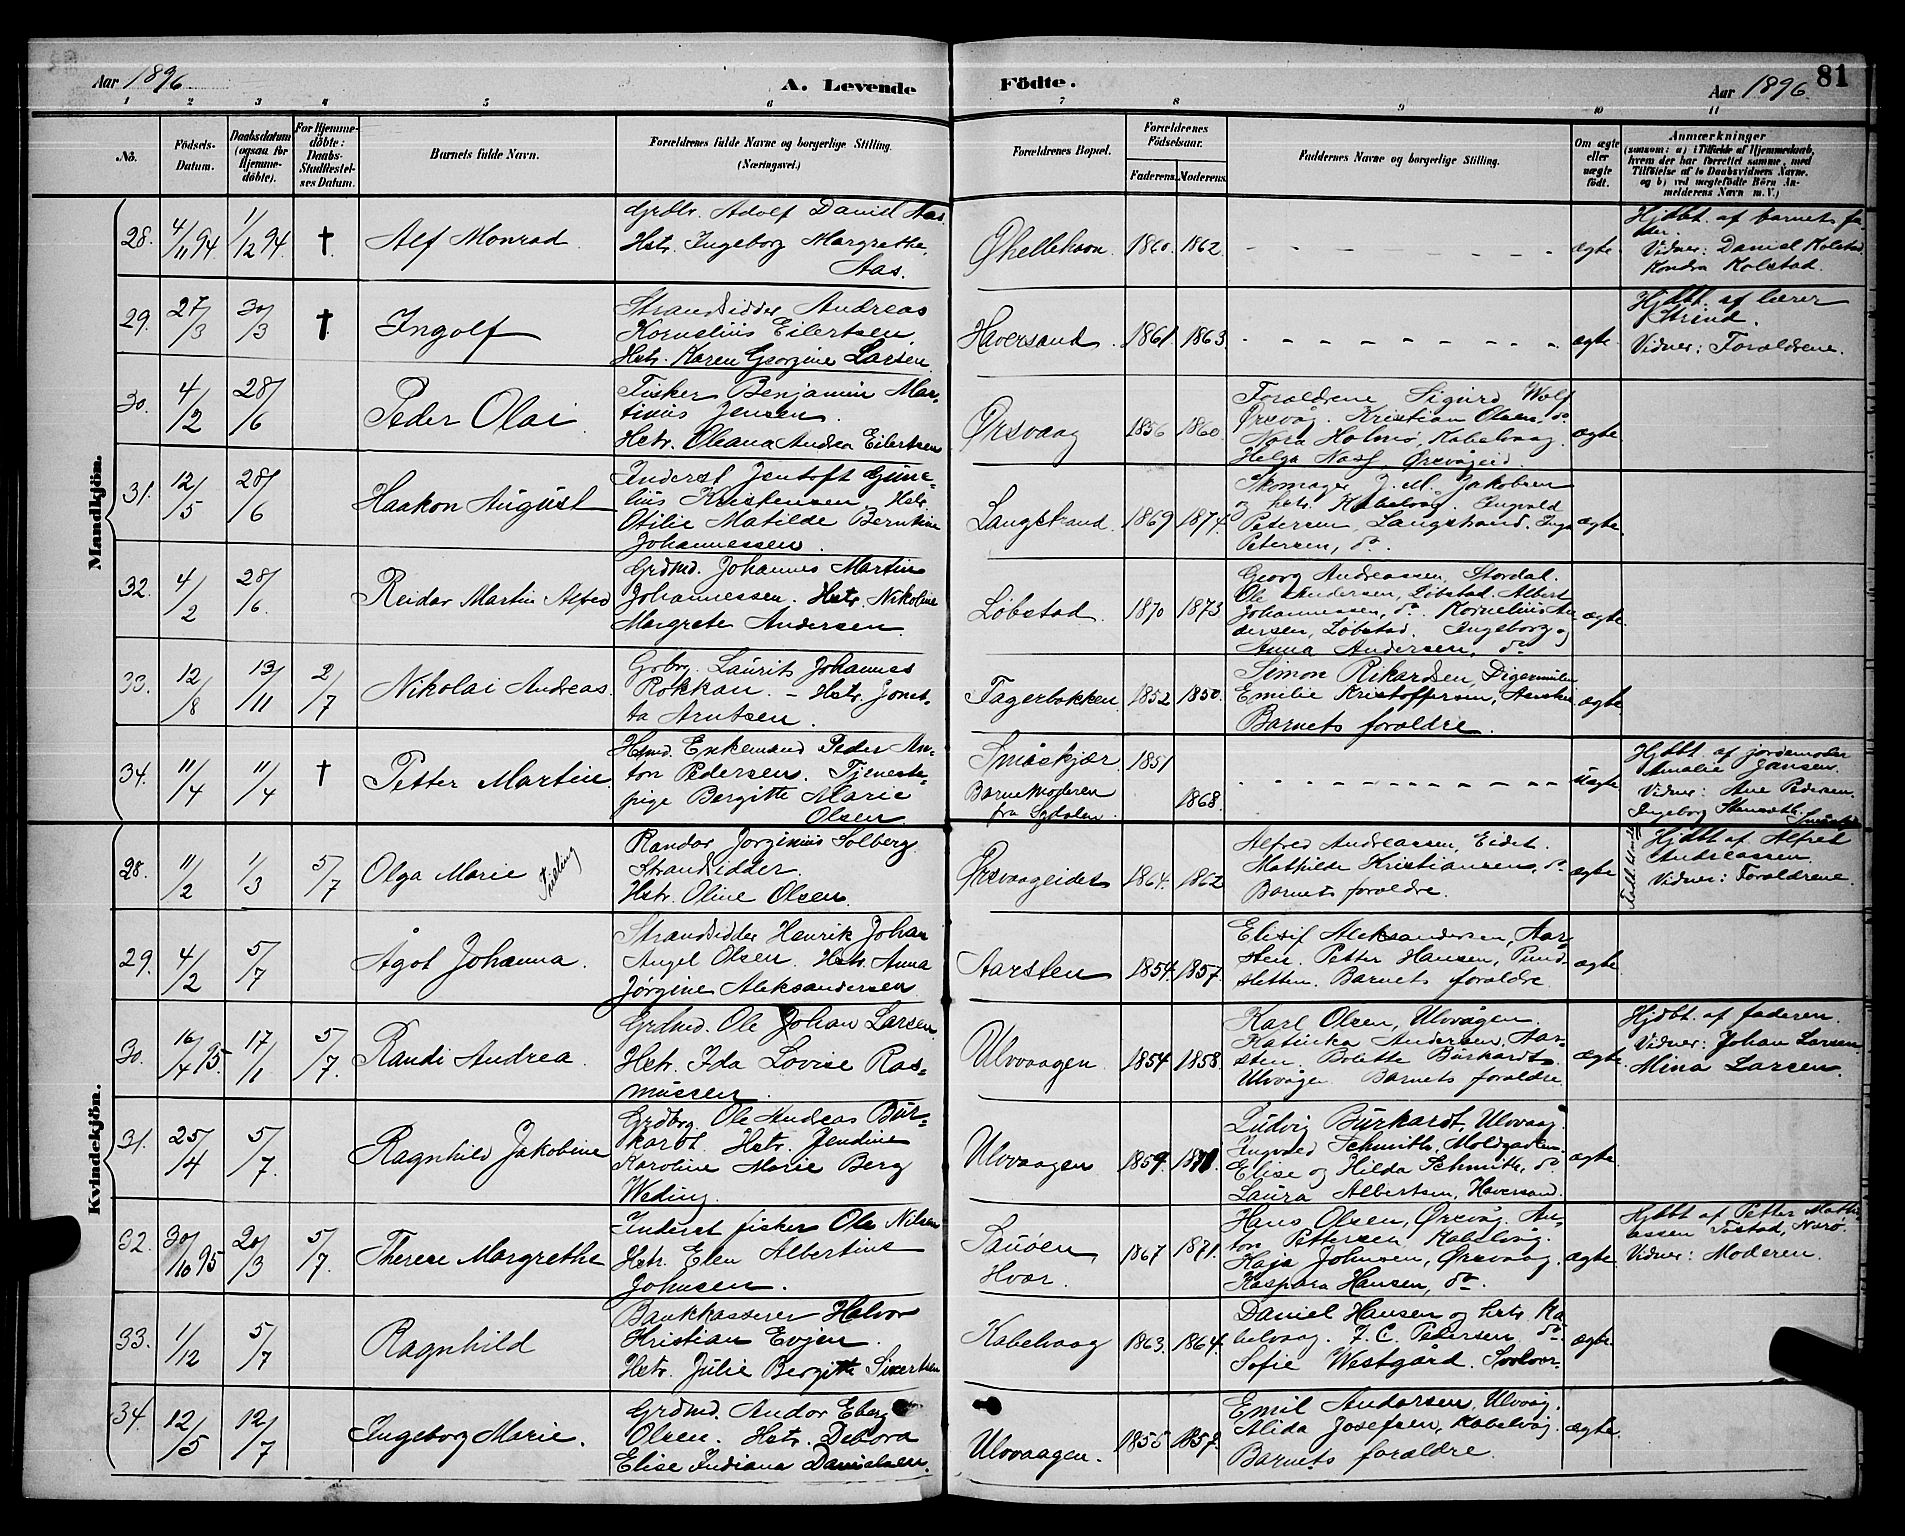 Aar 1896.
A. Levende
Födte.
Aar 1896.
81
1 2 3 4 5 6 7 8 9 10 11
Mandkjön.
Kvindekjön.
No.
Födsels-
Datum.
Daabsdatum
(ogsaa for
Hjemme-
döbte).
For Hjemme-
döbte:
Daabs-
Stadfæstel-
ses Datum.
Barnets fulde Navn.
Forældrenes fulde Navne og borgerlige Stilling.
(Næringsvei.)
Forældrenes Bopæl.
Forældrenes
Födselsaar.
Faderens. Moderens.
Faddernes Navne og borgerlige Stilling.
Om ægte
eller
uægte
födt.
Anmærkninger
(saasom: a) i Tilfælde af Hjemmedaab,
hvem der har forrettet samme, med
Tilföielse af to Daabsvidners Navne.
og b) ved uegtefödte Börn An-
melderens Navn m. V.)
28. 4/11 94 1/12 94 † Alf Monrad
Grdbr. Adolf Daniel Aas.
Hstr. Ingeborg Margrethe
Aas.
1860. 1862.
ægte
Hjdbt. af barnets fa-
der.
Vidner: Daniel Kolstad
Kolstad.
29. 27/3 30/3 † Ingolf
Strandsidder Andreas
Kornelius Eilertsen.
Hstr. Karen Georgine Larsen.
Haversand. 1861 1863.
ægte
Hjdbt. af lærer
Strind.
Vidner: Forældrene.
30. 4/2 28/6 Peder Olai
Fisker Benjamin Mar-
tinus Jensen.
Hstr. Oleana Andrea Eilertsen
Ørsvaag 1856 1860.
Forældrene Sigurd Wolf
Ørsvåg. Kristian Olsen, do
Nora Holmø, Kabelvaag.
Helga Næss, Ørsvågeid.
ægte
31. 12/5 28/6 Haakon August
Inderst Jentoft
Kristensen Hstr.
Otilie Matilde Berntine
Johannessen.
Langstrand. 1869 1874.
Skomager J. M. Jakobsen
og hstr. Kabelvåg. Ingvald
Petersen, Langstrand, Inga
Petersen, do.
ægte
32. 4/2 28/6. Reidar Martin Alfred
Grdmd. Johannes Martin
Johannessen. Hstr. Nikoline
Margrete Andersen.
Løbstad. 1870 1873
Georg Andreassen, Stordal.
Ole Andersen, Løbstad. Albert
Johannessen, do. Kornelius An-
dersen, Løbstad. Ingeborg og
Anna Andersen, do
ægte.
33. 12/8 13/11 2/7 Nikolai Andreas.
Gbrg. Laurits Johannes
Rokkan. – Hstr. Jonet-
ta Arntsen.
Fagerbakken. 1852 1850.
Simon Rikardsen, Digermulen
Emilie Kristoffersen,
Barnets forældre.
ægte
34. 11/4 11/4 † Petter Martin
Hsmd. Enkemand Peder An-
ton Pedersen. Tjeneste-
pige Bergitte Marie
Olsen.
Småskjær 1851
Barnemoderen 1868.
fra Sydalen
uægte
Hjdbt. af jordemoder
Amalie Jansen.
Vidner: Ane Pedersen.
Ingeborg
28. 11/2 1/3 5/7 Olga Marie Tvilling
Randor Jorginius Solberg.
Strandsidder.
Hstr. Oline Olsen.
Ørsvaageidet 1864. 1862
Alfred Andreassen, Eidet.
Mathilde Kristiansen, do
Barnets forældre.
ægte
Hjdbt. af. Alfred
Andreassen.
Vidner: Forældrene.
29. 4/2 5/7 Ågot Johanna.
Strandsidder Henrik Johan
Angel Olsen. Hstr. Anna
Jørgine Aleksandersen
Aarsten 1854. 1857.
Elisif Aleksandersen, Aar-
sten. Petter Hansen, Pund-
sletten. Barnets forældre.
ægte
30. 16/4 95. 17/1 5/7. Randi Andrea.
Grdmd. Ole Johan Larsen.
Hstr. Ida Lovise Ras-
mussen.
Ulvaagen 1854 1858.
Karl Olsen, Ulvågen.
Katinka Andersen, Aar-
sten. Bolette Burkardt
Ulvågen Barnets forældre.
ægte.
Hjdbt. af faderen.
Vidner: Johan Larsen
Mina Larsen.
31. 25/4 5/7. Ragnhild Jakobine
Grdbrg. Ole Andreas Bur-
kardt. Hstr. Jendine
Karoline Marie Berg
Weding.
Ulvaagen 1859.
Ludvig Burkardt, Ulvaag.
Ingvald Schmith, Moldgaven
Elise og Hilda Schmith, do
Laura Albertsen, Haversand.
ægte.
32. 30/10 95 20/3 5/7. Therese Margrethe
Inderst fisker Ole Nilsen
Hstr. Elen Albertine
Johnsen.
1867 1871.
Hans Olsen, Ørsvåg. An-
ton Pettersen, Kabelvåg.
Kaja Johnsen, Ørsvaag.
Kaspara Hansen, do.
ægte.
Hjdbt. af Petter Mathi-
assen
Vidner: Moderen.
33. 1/12 5/7 Ragnhild
Bankkasserer Halvor
Kristian Evjen.
Hstr. Julie Bergitte Sivertsen
Kabelvaag 1863. 1864.
Daniel Hansen og hstr. Ka-
belvaag. J. C. Pedersen, do
Sofie Westgård. Svolvær.
ægte
34. 12/5 12/7 Ingeborg Marie.
Grdmd. Andor Eberg
Olsen. Hstr. Debora
Elise Indiana Danielsen.
Ulvaagen. 1855 1857.
Emil Andersen, Ulvvåg.
Alida Josefsen, Kabelvåg.
Barnets forældre.
ægte.